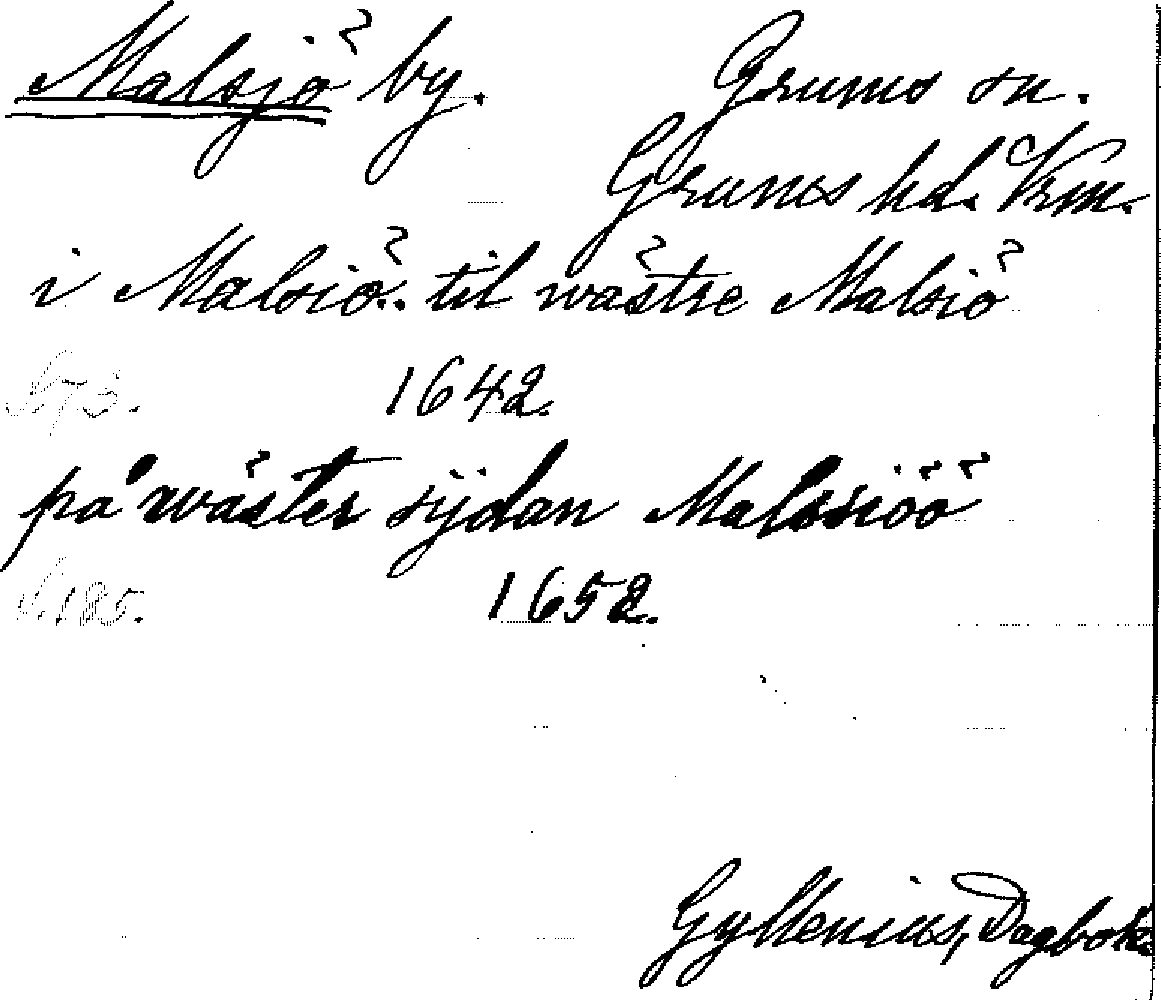 Malsjö by. Grums sn.
Grums hd. Vrm.
i Malsiö.. til wästre Malsiö
1642.
på wäster sijdan Malssiöö
s. 185. 1652.
Gyllenius, Dagbok.